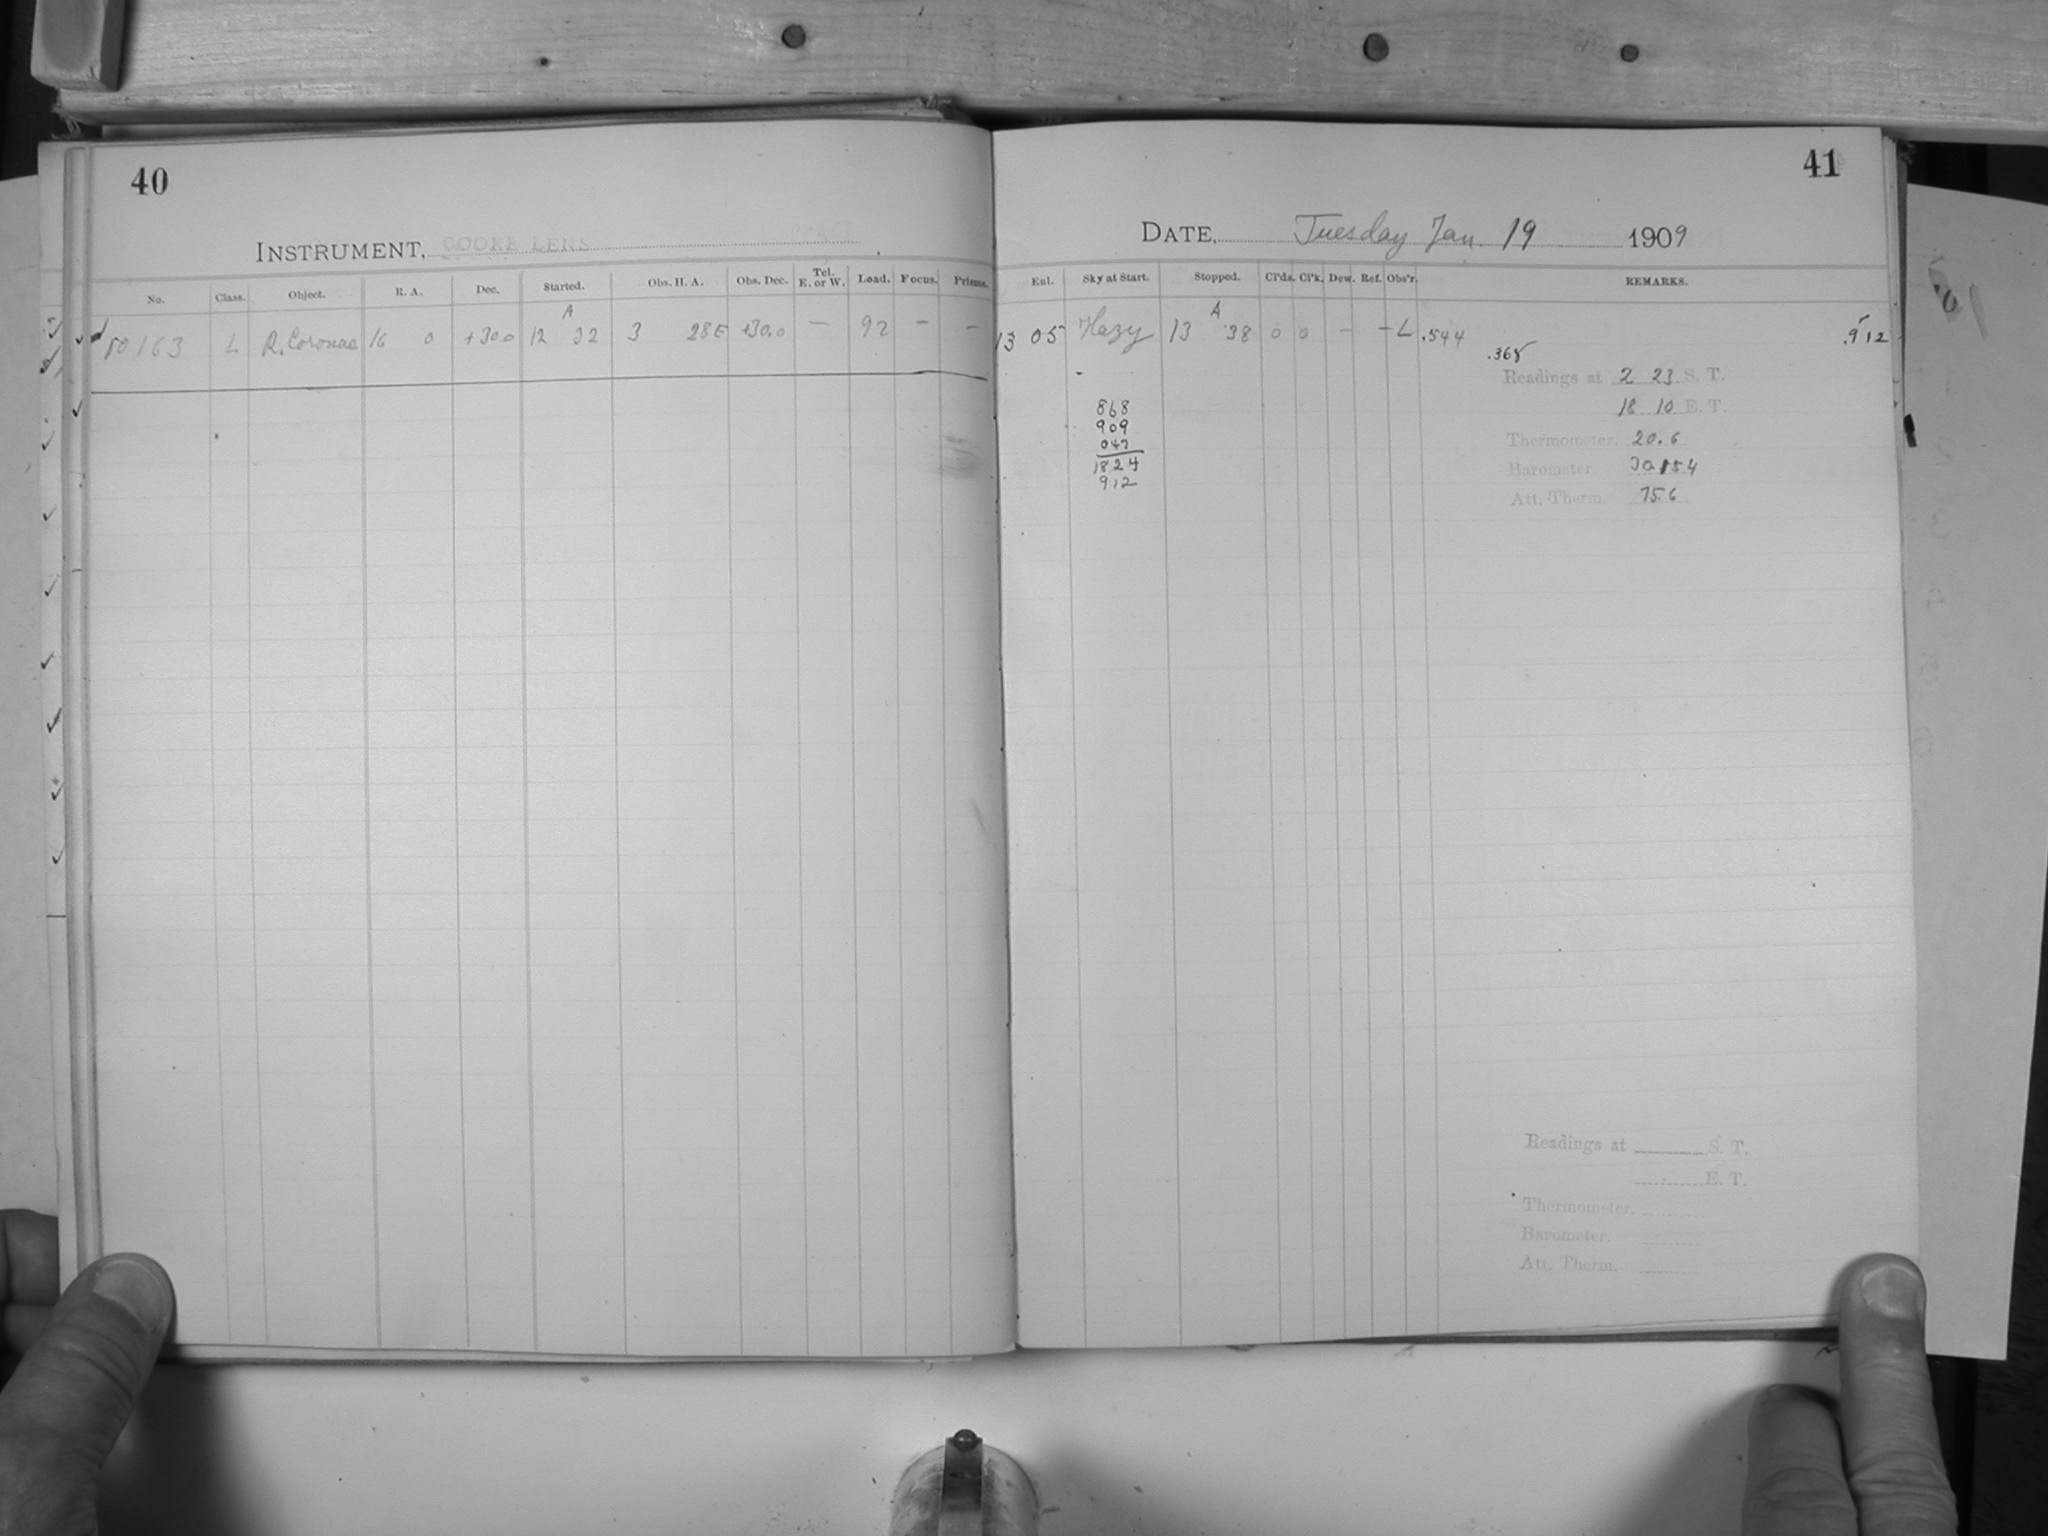 40
INSTRUMENT, COOKE LENS
No. Class. Object. R. A. Dec. Started. Obs. H. A. Obs. Dec. Tel. E. or W. Load. Focus. Prisms.
A
10163 L R. Coronae 16 0 +30.0 12 32 3 28E +30.0 — 92 — —
41
DATE, Tuesday Jan. 19 1909
Enl. Sky at Start. Stopped. Cl'ds. Cl'k. Dew. Ref. Obs'r. REMARKS.
A
13 05 Hazy 13 38 0 0 — — L .544 .912
.368
Readings at 2 23 S. T.
18 10 E. T.
868
909
047
1824
912
Thermometer. 20.6
Barometer. 30.154
Att. Therm. 75.6
Readings at S. T.
E. T.
Thermometer.
Barometer.
Att. Therm.